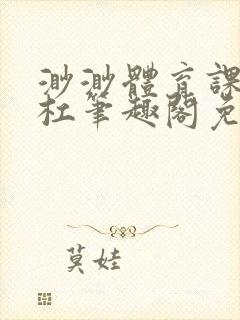 渺渺體育課
杜筆趣閣免
莫娃